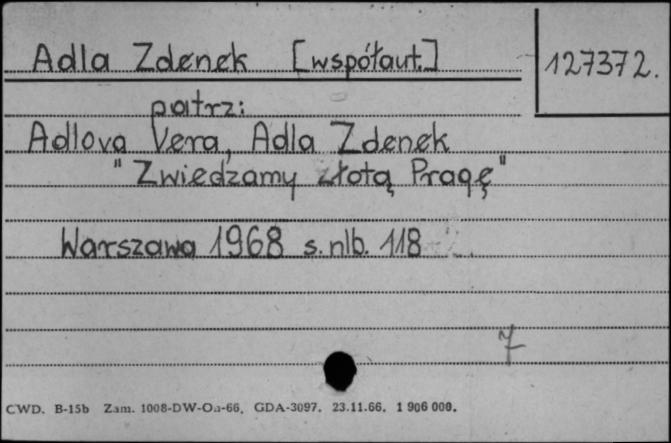 Adla Zdenek [współaut.]
127372.
patrz:
Adlova Vera, Adla Zdenek
"Zwiedzamy złotą Pragę"
Warszawa 1968 s. nlb. 118
7
CWD. B-15b Zam. 1008-DW-Oa-66. GDA-3097. 23.11.66. 1 906 000.